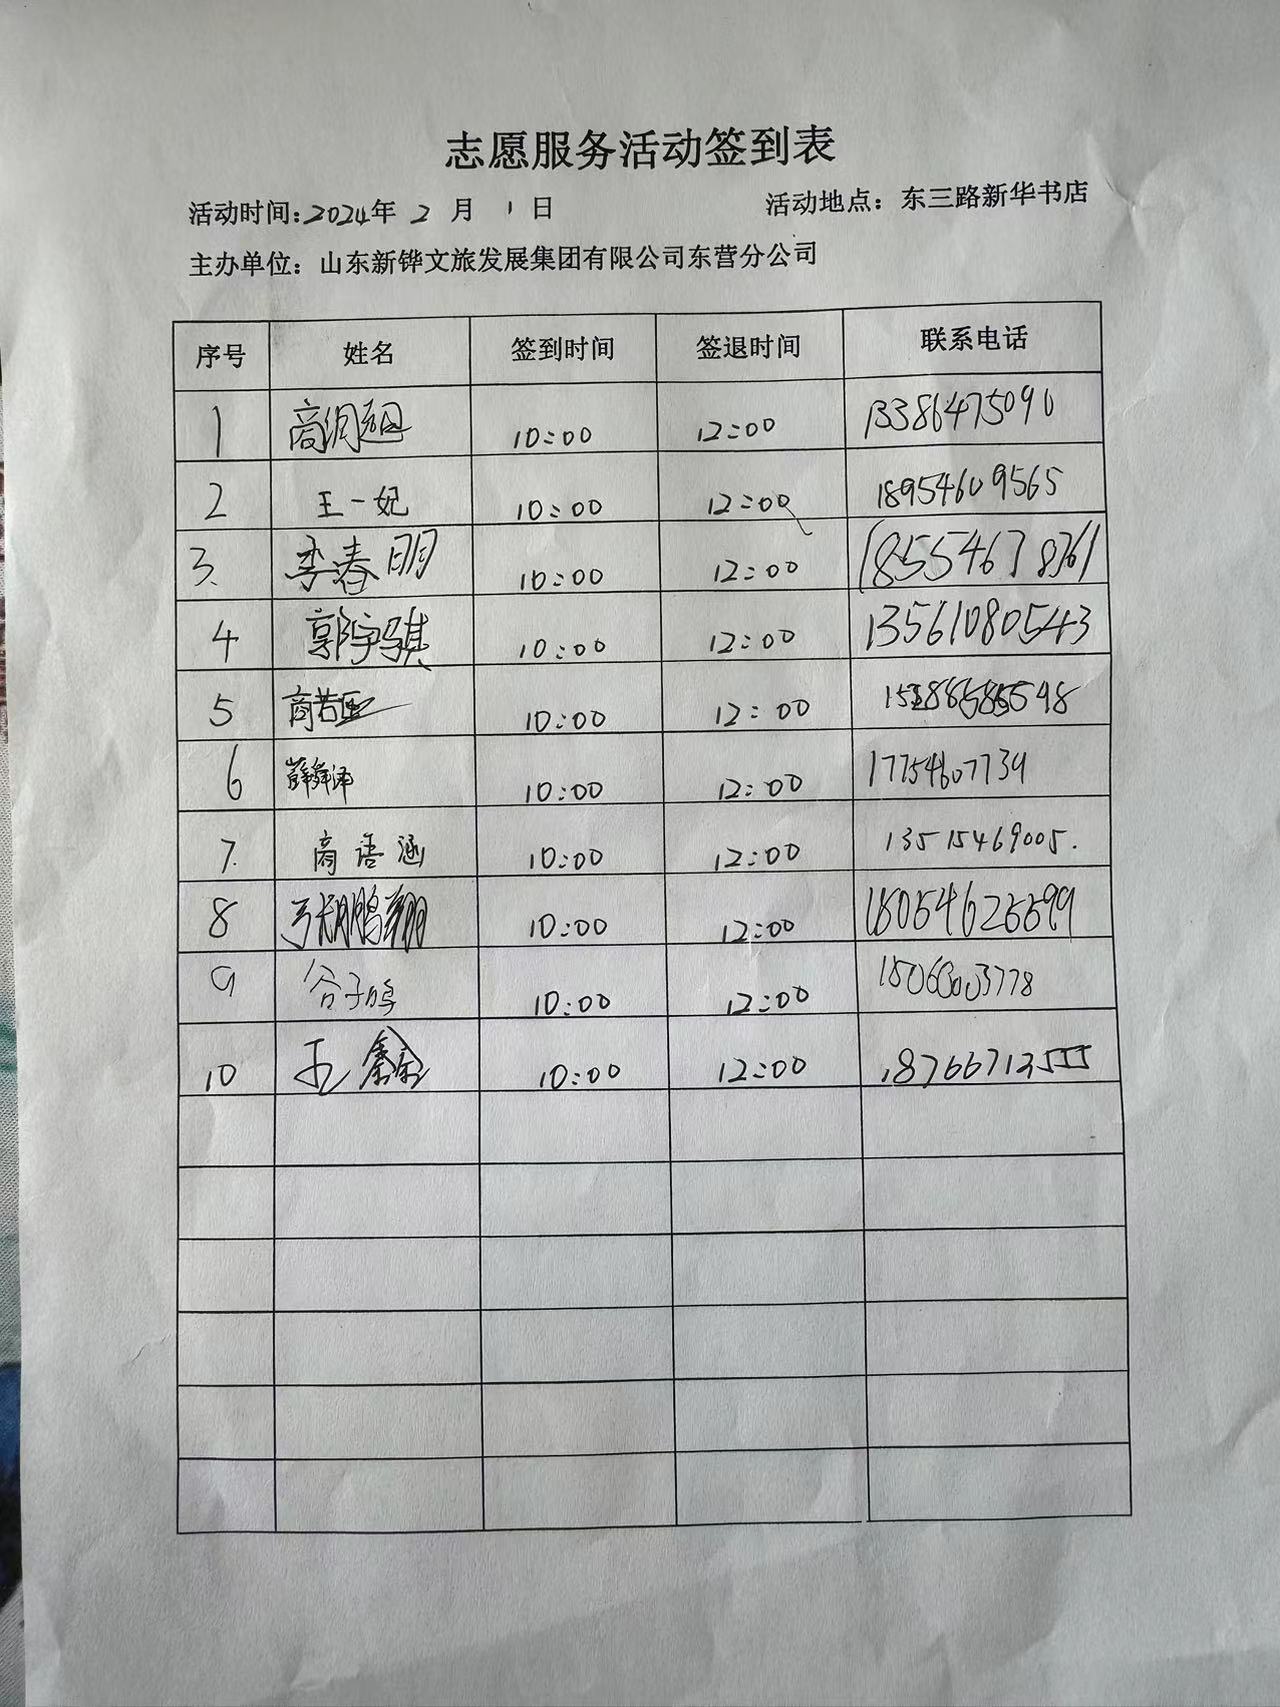 志愿服务活动签到表
活动时间:2024年 2 月 1 日 活动地点：东三路新华书店
主办单位：山东新铧文旅发展集团有限公司东营分公司
序号 姓名 签到时间 签退时间 联系电话
1 商润 10:00 12:00 13386475090
2 王一妃 10:00 12:00 18954609565
3. 李春明 10:00 12:00 18554678761
4 郭宇骐 10:00 12:00 13561080543
5 商若 10:00 12:00
6 薛舜泽 10:00 12:00 17754607739
7. 商语涵 10:00 12:00 13515469005.
8 张鹏翔 10:00 12:00 18054625599
9 谷子鸣 10:00 12:00
10 王鑫 10:00 12:00 18766713555